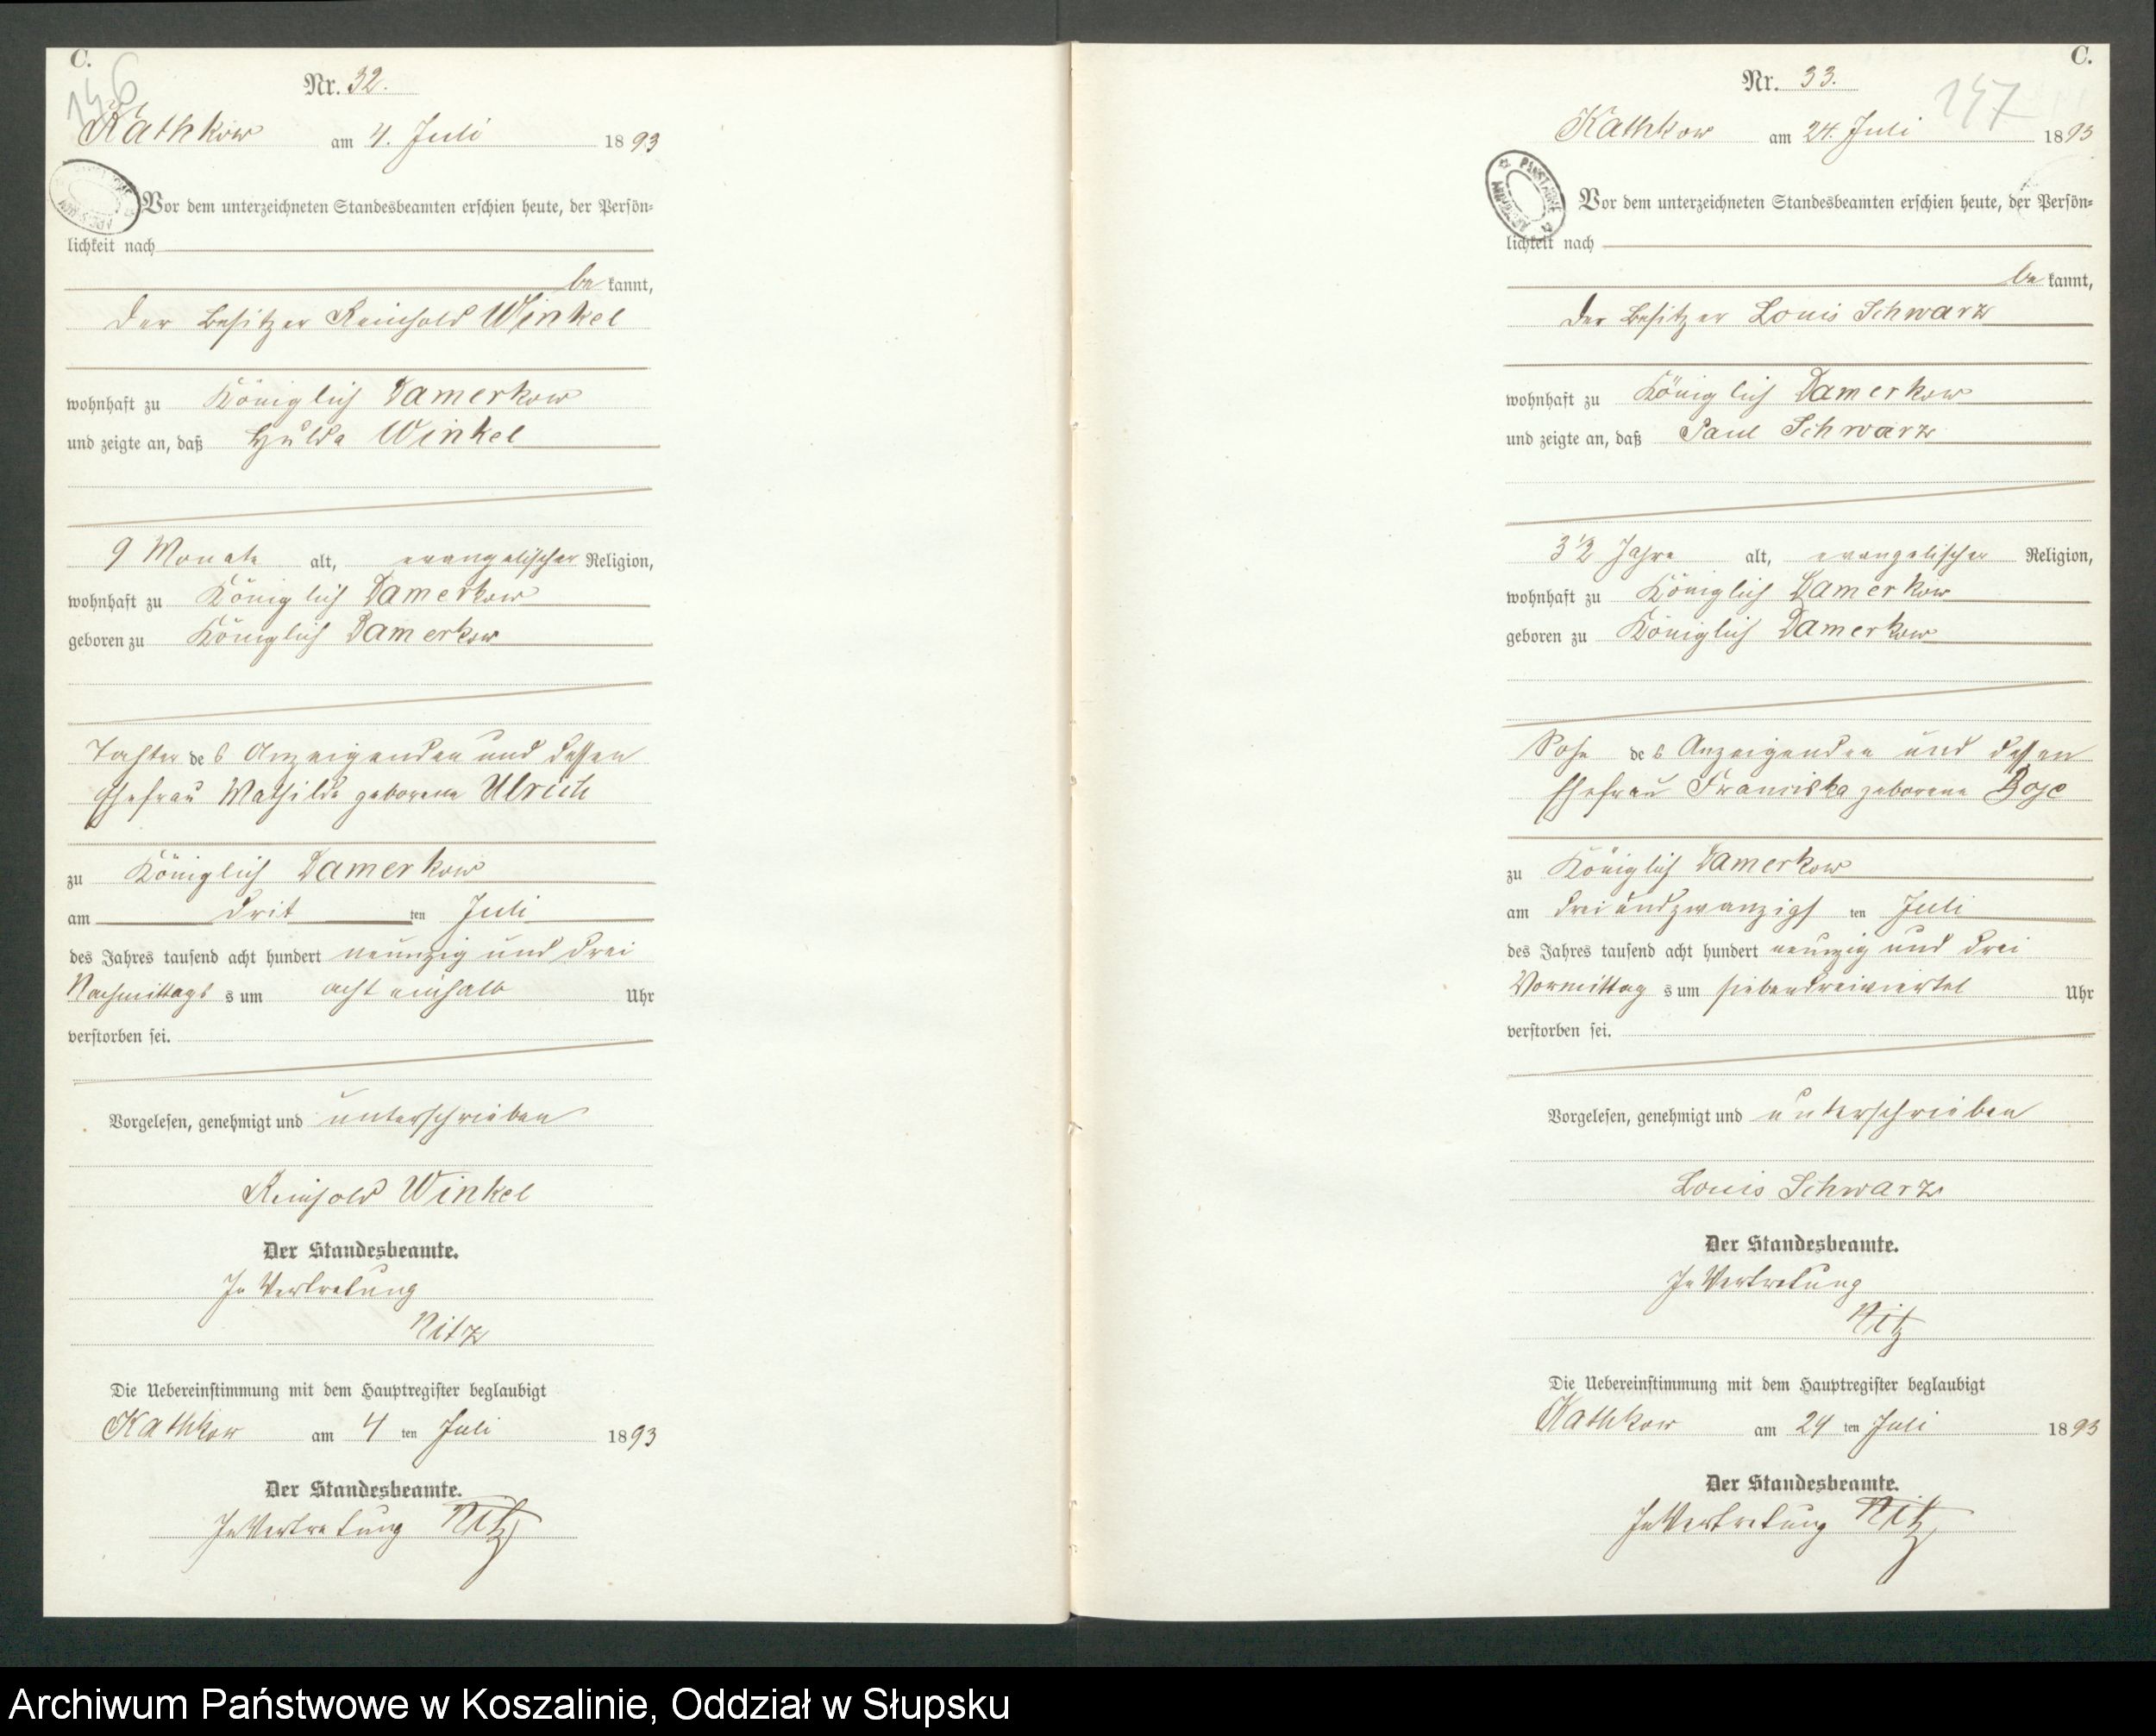 C.
146
Nr. 32.
Kathkow am 4. Juli 1893
Vor dem unterzeichneten Standesbeamten erschien heute, der Persön-
lichkeit nach
be kannt,
der Besitzer Reinhold Winkel
wohnhaft zu Königlich Damerkow
und zeigte an, daß Hulda Winkel
9 Monate alt, evangelischer Religion,
wohnhaft zu Königlich Damerkow
geboren zu Königlich Damerkow
Tochter des Anzeigenden und dessen
Ehefrau Mathilde geborene Ulrich
zu Königlich Damerkow
am drit ten Juli
des Jahres tausend acht hundert neunzig und drei
Nachmittags s um acht einhalb Uhr
verstorben sei.
Vorgelesen, genehmigt und unterschrieben
Reinhold Winkel
Der Standesbeamte.
In Vertretung
Nitz
Die Uebereinstimmung mit dem Hauptregister beglaubigt
Kathkow am 4 ten Juli 1893
Der Standesbeamte.
In Vertretung Nitz
C.
147
Nr. 33.
Kathkow am 24. Juli 1893
PAŃSTWOWE
Vor dem unterzeichneten Standesbeamten erschien heute, der Persön-
lichkeit nach
be kannt,
der Besitzer Louis Schwarz
wohnhaft zu Königlich Damerkow
und zeigte an, daß Paul Schwarz
3 1/2 Jahre alt, evangelischer Religion,
wohnhaft zu Königlich Damerkow
geboren zu Königlich Damerkow
Sohn des Anzeigenden und dessen
Ehefrau Franciska geborene
zu Königlich Damerkow
am dreiundzwanzigs ten Juli
des Jahres tausend acht hundert neunzig und drei
Vormittag s um siebendreiviertel Uhr
verstorben sei.
Vorgelesen, genehmigt und unterschrieben
Louis Schwarz
Der Standesbeamte.
In Vertretung
Nitz
Die Uebereinstimmung mit dem Hauptregister beglaubigt
Kathkow am 24 ten Juli 1893
Der Standesbeamte.
In Vertretung Nitz
Archiwum Państwowe w Koszalinie, Oddział w Słupsku